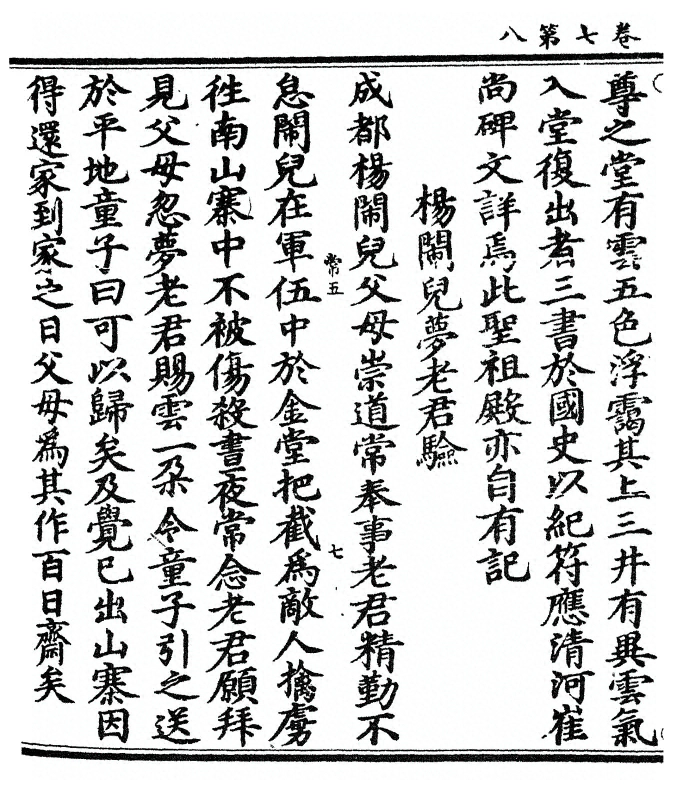 卷七第八
尊之堂有雲五色浮靄其上三井有異雲氣
入堂復出者三書於國史以紀符應清河崔
尚碑文詳焉此聖祖殿亦自有記
楊鬧兒夢老君驗
成都楊鬧兒父母崇道常奉事老君精勤不
常五
七
怠鬧兒在軍伍中於金堂把截爲敵人擒虜
徃南山寨中不被傷殺晝夜常念老君願拜
見父母忽夢老君賜雲一朶令童子引之送
於平地童子曰可以歸矣及覺已出山寨因
得還家到家之日父母爲其作百日齋矣